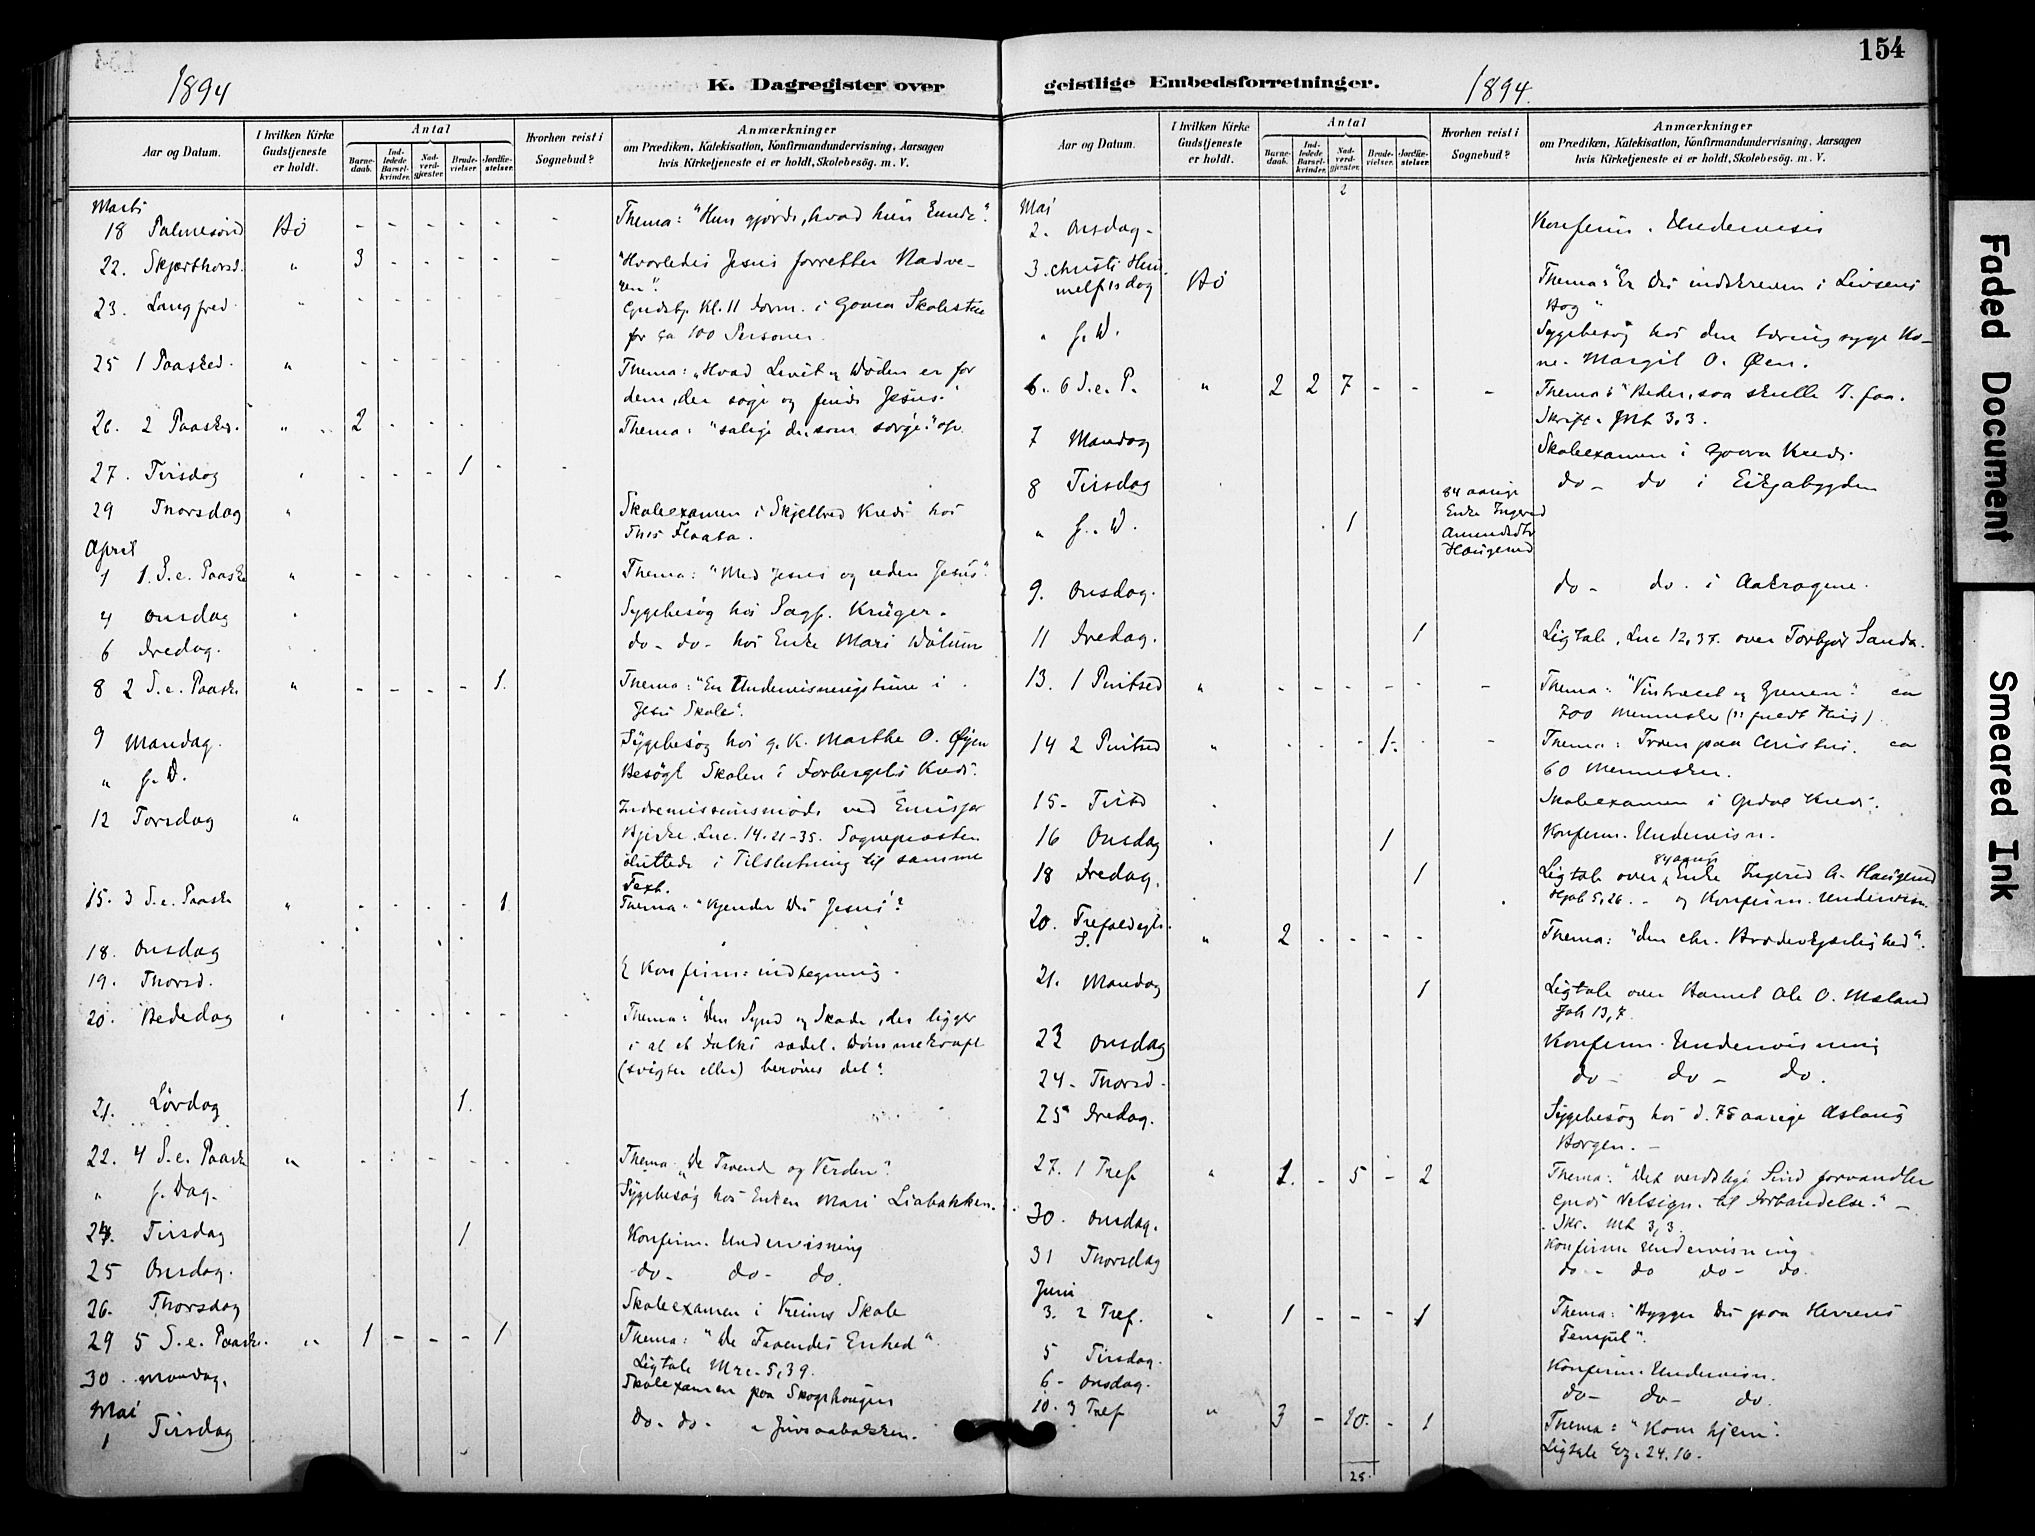 154
1894
K. Dagregister over
geistlige Embedsforretninger.
1894.
Aar og Datum.
I hvilken Kirke Gudstjeneste er holdt.
Antal
Barne-daab.
Ind-ledede Barsel-kvinder.
Nad-verd-gjæster.
Brude-vielser.
Jordfæ-stelser.
Hvorhen reist i Sognebud?
Anmærkninger
om Prædiken, Katekisation, Konfirmandundervisning, Aarsagen
hvis Kirketjeneste ei er holdt, Skolebesög. m. V.
Marts
18 Palmesönd Bö - - - - - - Thema: "Hun gjorde, hvad hun kunde".
22. Skjærthorsd. " 3 - - - - - "Hvorledes Jesus forretter Nadve-
ren".
23. Langfred. " - - - - - Gudstj. Kl. 11 Form. i Gaara Skolestue
for ca 100 Personer.
25 1 Paasked. " - - - - - Thema: "Hvad Livet og Döden er for
dem, der söge og finde Jesus."
26. 2 Paasked. " 2 - - - Thema: "salige de, som sörge."
27. Tirsdag " - - - 1 - -
29 Thorsdag " Skoleexamen i Skjelbred Kreds hos
Flaata.
April
1 1. S. e. Paaske " - - - - - - Thema: "Med Jesus og uden Jesus".
4 Onsdag " Sygebesög hos Sagf. Krüger.
6 Fredag. do - do - hos Enke Mari
8 2 S. e. Paask. " - - - - 1. Thema: "En Undervisningstime i
Jesu Skole".
9 Mandag. Sygebesög hos g. K. Marthe O. Öyen
" s. D. Besögt Skolen i Forbergets Kreds.
12 Torsdag " Indremissionsmöde ved Emisjær
Luc. 14. 21-35. Sognepræsten
sluttede i Tilslutning til samme
Text.
15. 3 S. e. Paaske " - - - - 1 Thema: "Kjender Du Jesus"?
18. Onsdag
19. Thorsd. Konfirm: indtegning.
20. Bededag " - - - - - - Thema: "Den Synd og Skade, der ligger
i at et Folks sædel. Dömmekraft
(svigter eller) beröves det".
21. Lördag 1.
22. 4 S. e. Paaske " - - - - - - Thema "De Troende og Verden".
" s. Dag. Sygebesög hos Enken Mari Liabakken.
24. Tirsdag 1 Konfirm. Undervisning
25 Onsdag. do - do - do.
26. Thorsdag Skoleexamen i Skole
29 5 S. e. Paaske. " 1 - - - 1 Thema: "De Troendes Enhed".
Ligtale Mrc. 5,39.
30. Mandag. Skoleexamen paa Skogshougen
Mai
1 Tirsdag do - do -
Aar og Datum.
I hvilken Kirke Gudstjeneste er holdt.
Antal
Barne-daab.
Ind-ledede Barsel-kvinder.
Nad-verd-gjæster.
Brude-vielser.
Jordfæ-stelser.
Hvorhen reist i Sognebud?
Anmærkninger
om Prædiken, Katekisation, Konfirmandundervisning, Aarsagen
hvis Kirketjeneste ei er holdt, Skolebesög. m. V.
2
Mai
2. Onsdag - Konfirm. Undervisn
3. Christi Him-
melfartsdag Bö Thema: "Er Du indskreven i Livsens
Bog"
" s. D. Sygebesög hos den tæringssyge Ko-
ne Margit O. Öen.
6. 6 S. e. P. " 2 2 7 - - - Thema: "Beder, saa skulle I faa.
Skrift. Mt 3,3.
7 Mandag Skoleexamen i Gaara Kreds.
8 Tirsdag do - do i Eikjabygden
" s. D. 1 84 aarige
Enke Ingerid
Amundsdtr
Haugerud
9. Onsdag. do - do. i
11 Fredag. 1 Ligtale, Luc 12,37. over Torbjör Sanda.
13. 1 Pintsed " - - - - - - Thema: "Vintræet og Grenen". ca
700 Mennesker (fuldt Hus)
14 2 Pintsed " - - - 1. - - Thema: Troen paa Christus. ca
60 Mennesker.
15 - Tirsd Skoleexamen i Kreds.
16 Onsdag 1 Konfirm. Undervisn.
18 Fredag. 1 Ligtale over 84 aarige Enke Ingerid A. Haugerud
Hjob 5,26. - og Konfirm. Undervisn.
20. Trefoldigh.
S. " 2 - - - - Thema: "den chr. Broderkjærlighed".
21. Mandag 1 Ligtale over Barnet Ole O.
Joh 13,7.
23 Onsdag Konfirm. Undervisning
24 - Thorsd. do - do - do.
25 Fredag. Sygebesög hos d. 75 aarige Aslaug
Borgen. -
27. 1 Tref " 1. - 5 - 2 Thema: "Det verdslige Sind forvandler
Guds Velsign. til Forbandelse." -
Skr. Mt 3,3.
30. Onsdag. Konfirm Undervisning.
31 Thorsdag do - do do - do.
Juni
3. 2 Tref. " 1 - - - 1 Thema: "Bygger Du paa Herrens
Tempel".
5 Tirsdag. Konfirm. Undervisn.
6 - Onsdag. do - do - do.
10. 3 Tref " 3 - 10. - 1 Thema: "Kom hjem".
Ligtale Ez. 24.16.
25.
Faded Document
Smeared Ink